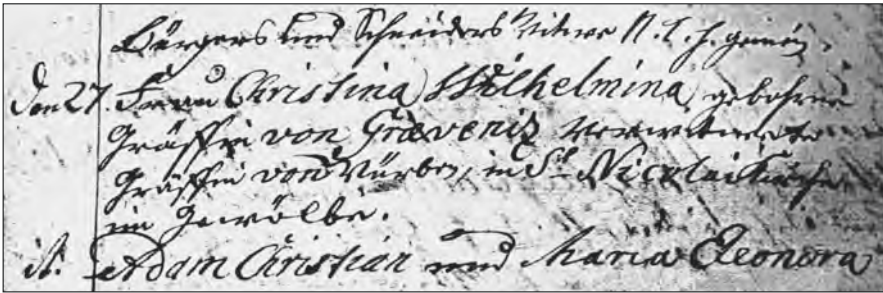 Bürgers und Schneiders Witwe N. C. h.
Den 27. Frau Christina Wilhelmina, gebohrne
Gräffin von Grævenitz verwitwete
Gräffin von Würben, in St. Nicolai Kirche
im Gewölbe.
it. Adam Christian und Maria Eleonora